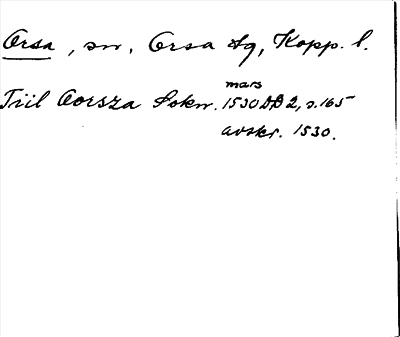 Orsa, sn, Orsa tg, Kopp. l.
Tiil Oorsza Sokn. mars 1530 DD 2, s. 165
avskr. 1530.